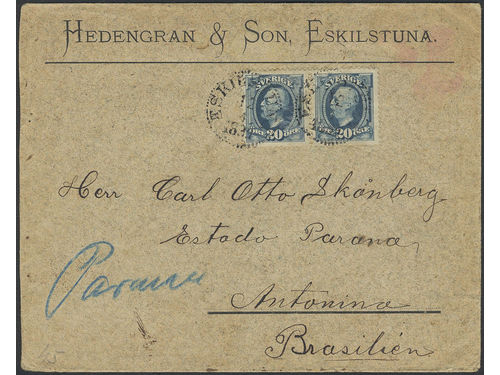 HEDENGRAN & SON, ESKILSTUNA.
SVERIGE SVERIGE
20 ÖRE 20 ÖRE
Herr Carl Otto Skånberg
Estado Parana,
Antonina
Brasilién